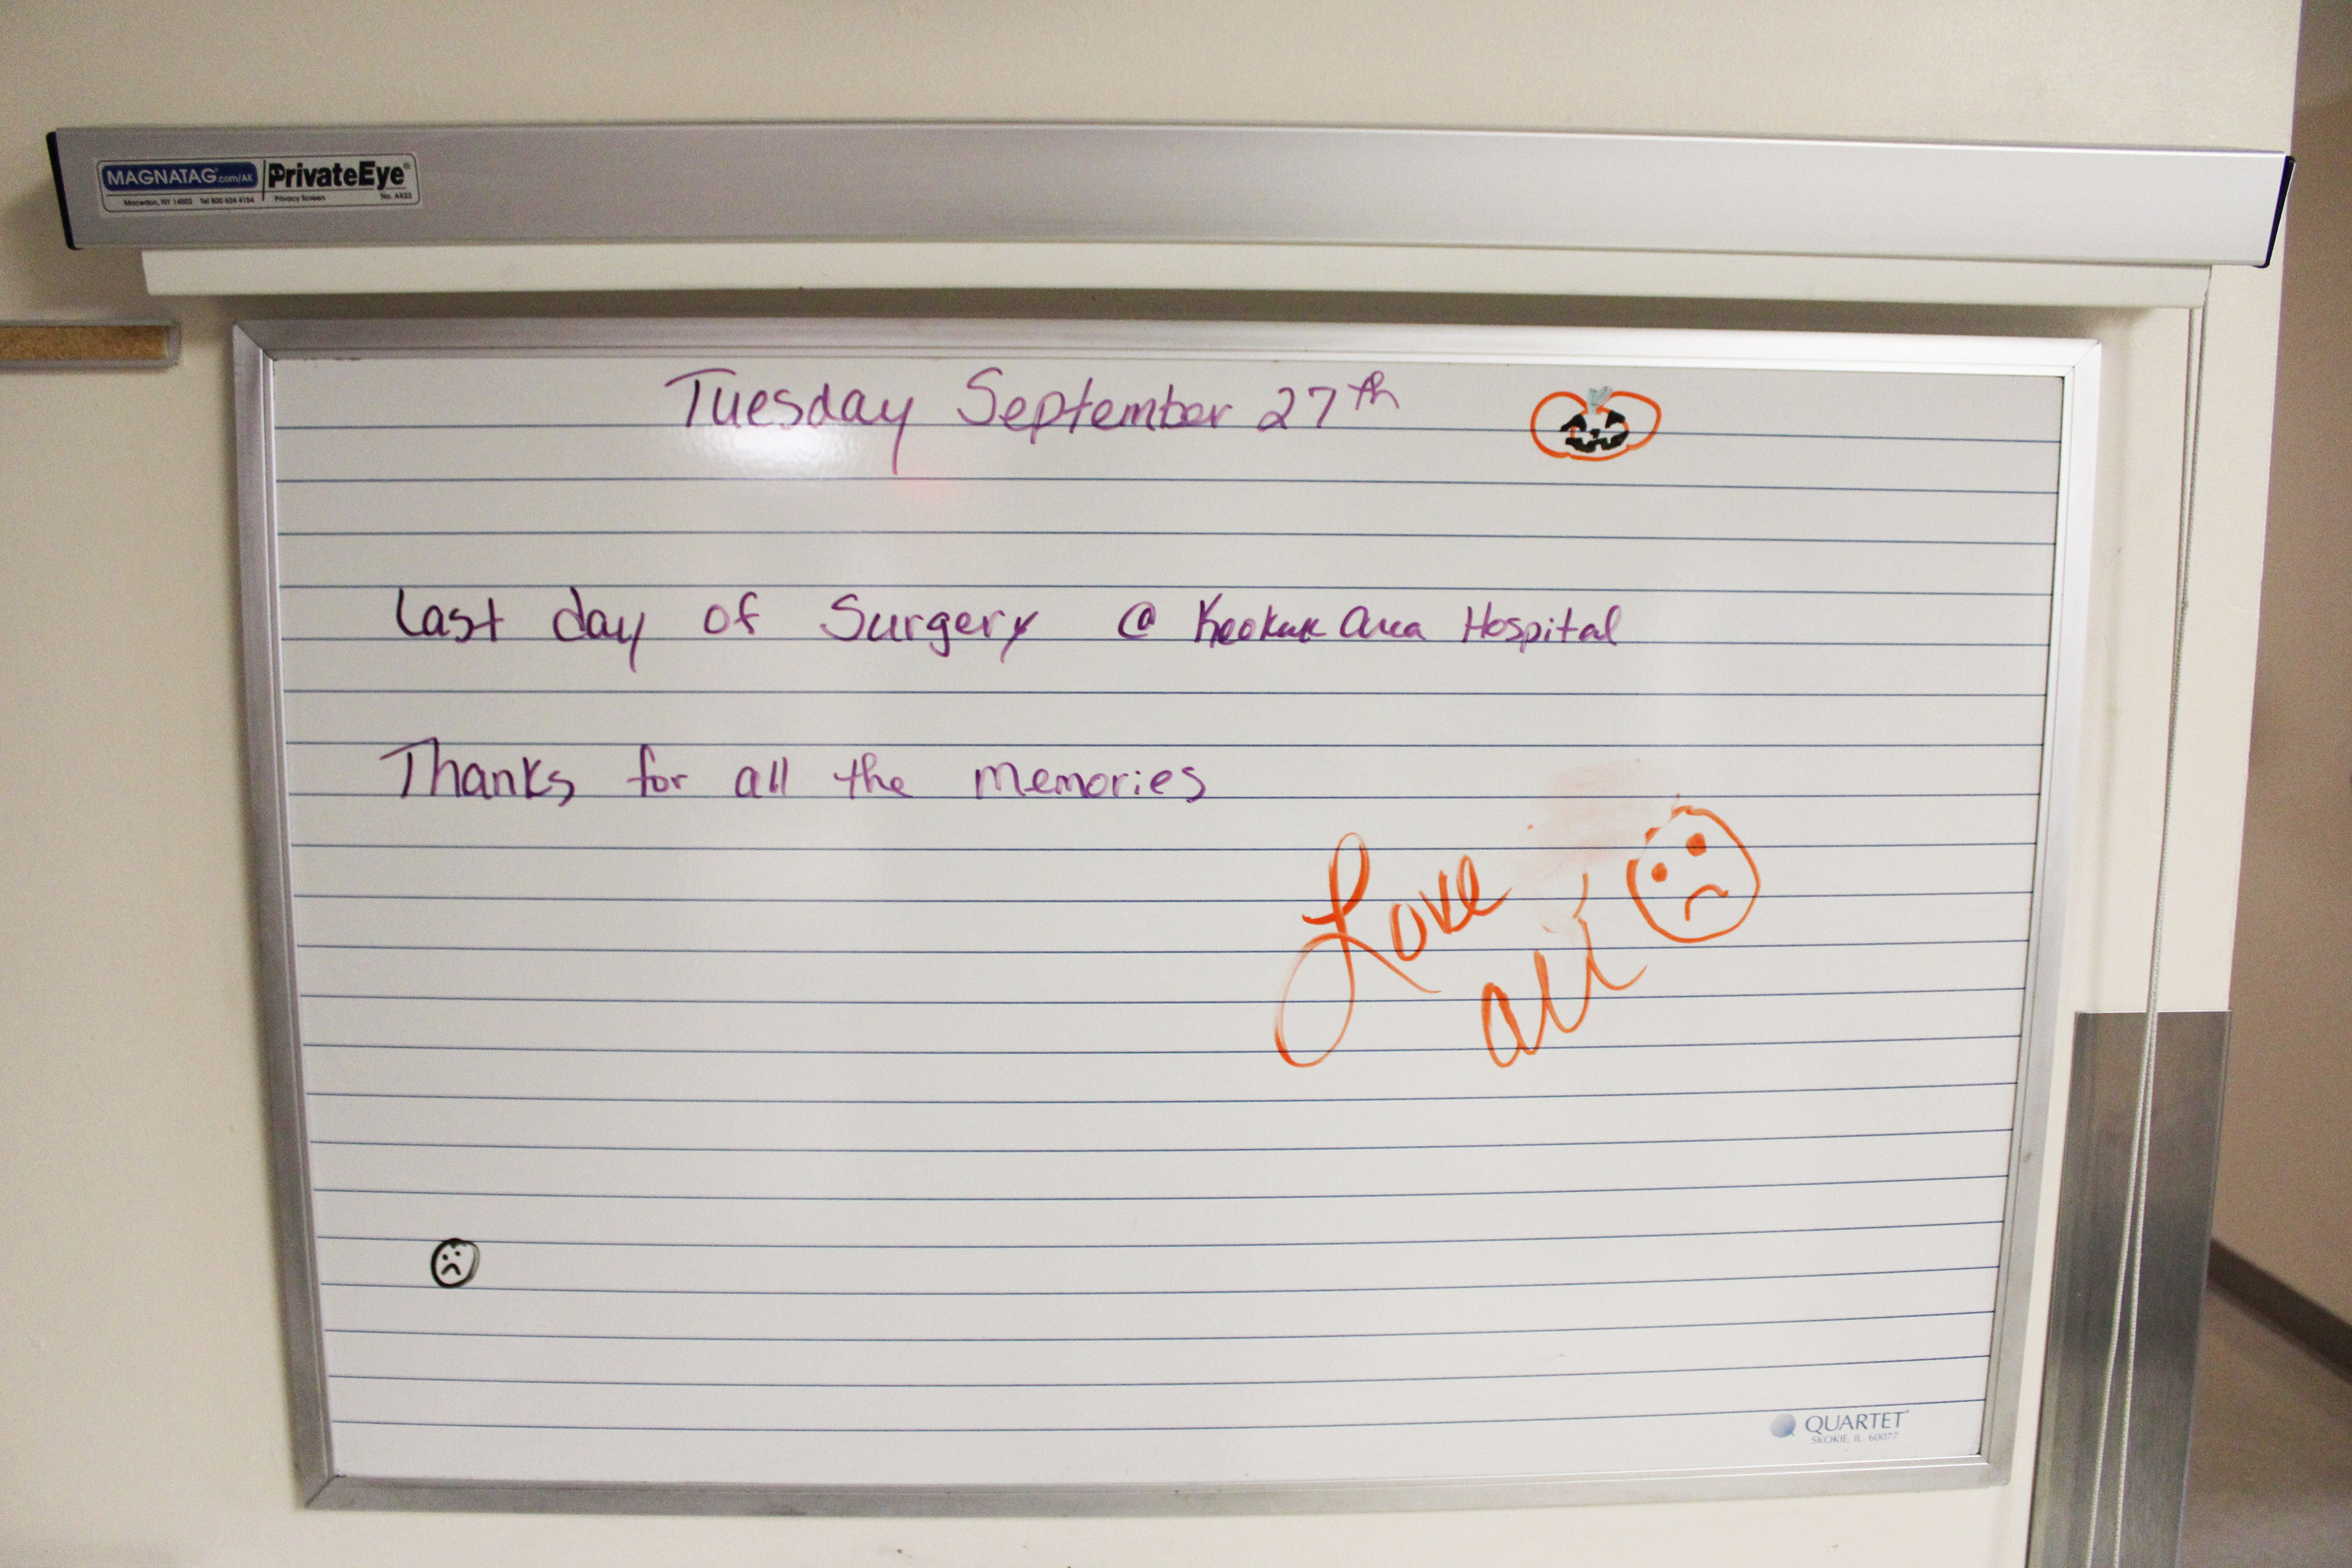 MAGNATAG.com/AK PrivateEye®
Macedon, NY 14502 Tel 800 624 4154 Privacy Screen No. AK33
Tuesday September 27th
Last day of Surgery @ Keokuk Area Hospital
Thanks for all the memories
Love
all
QUARTET
SKOKIE, IL 60077